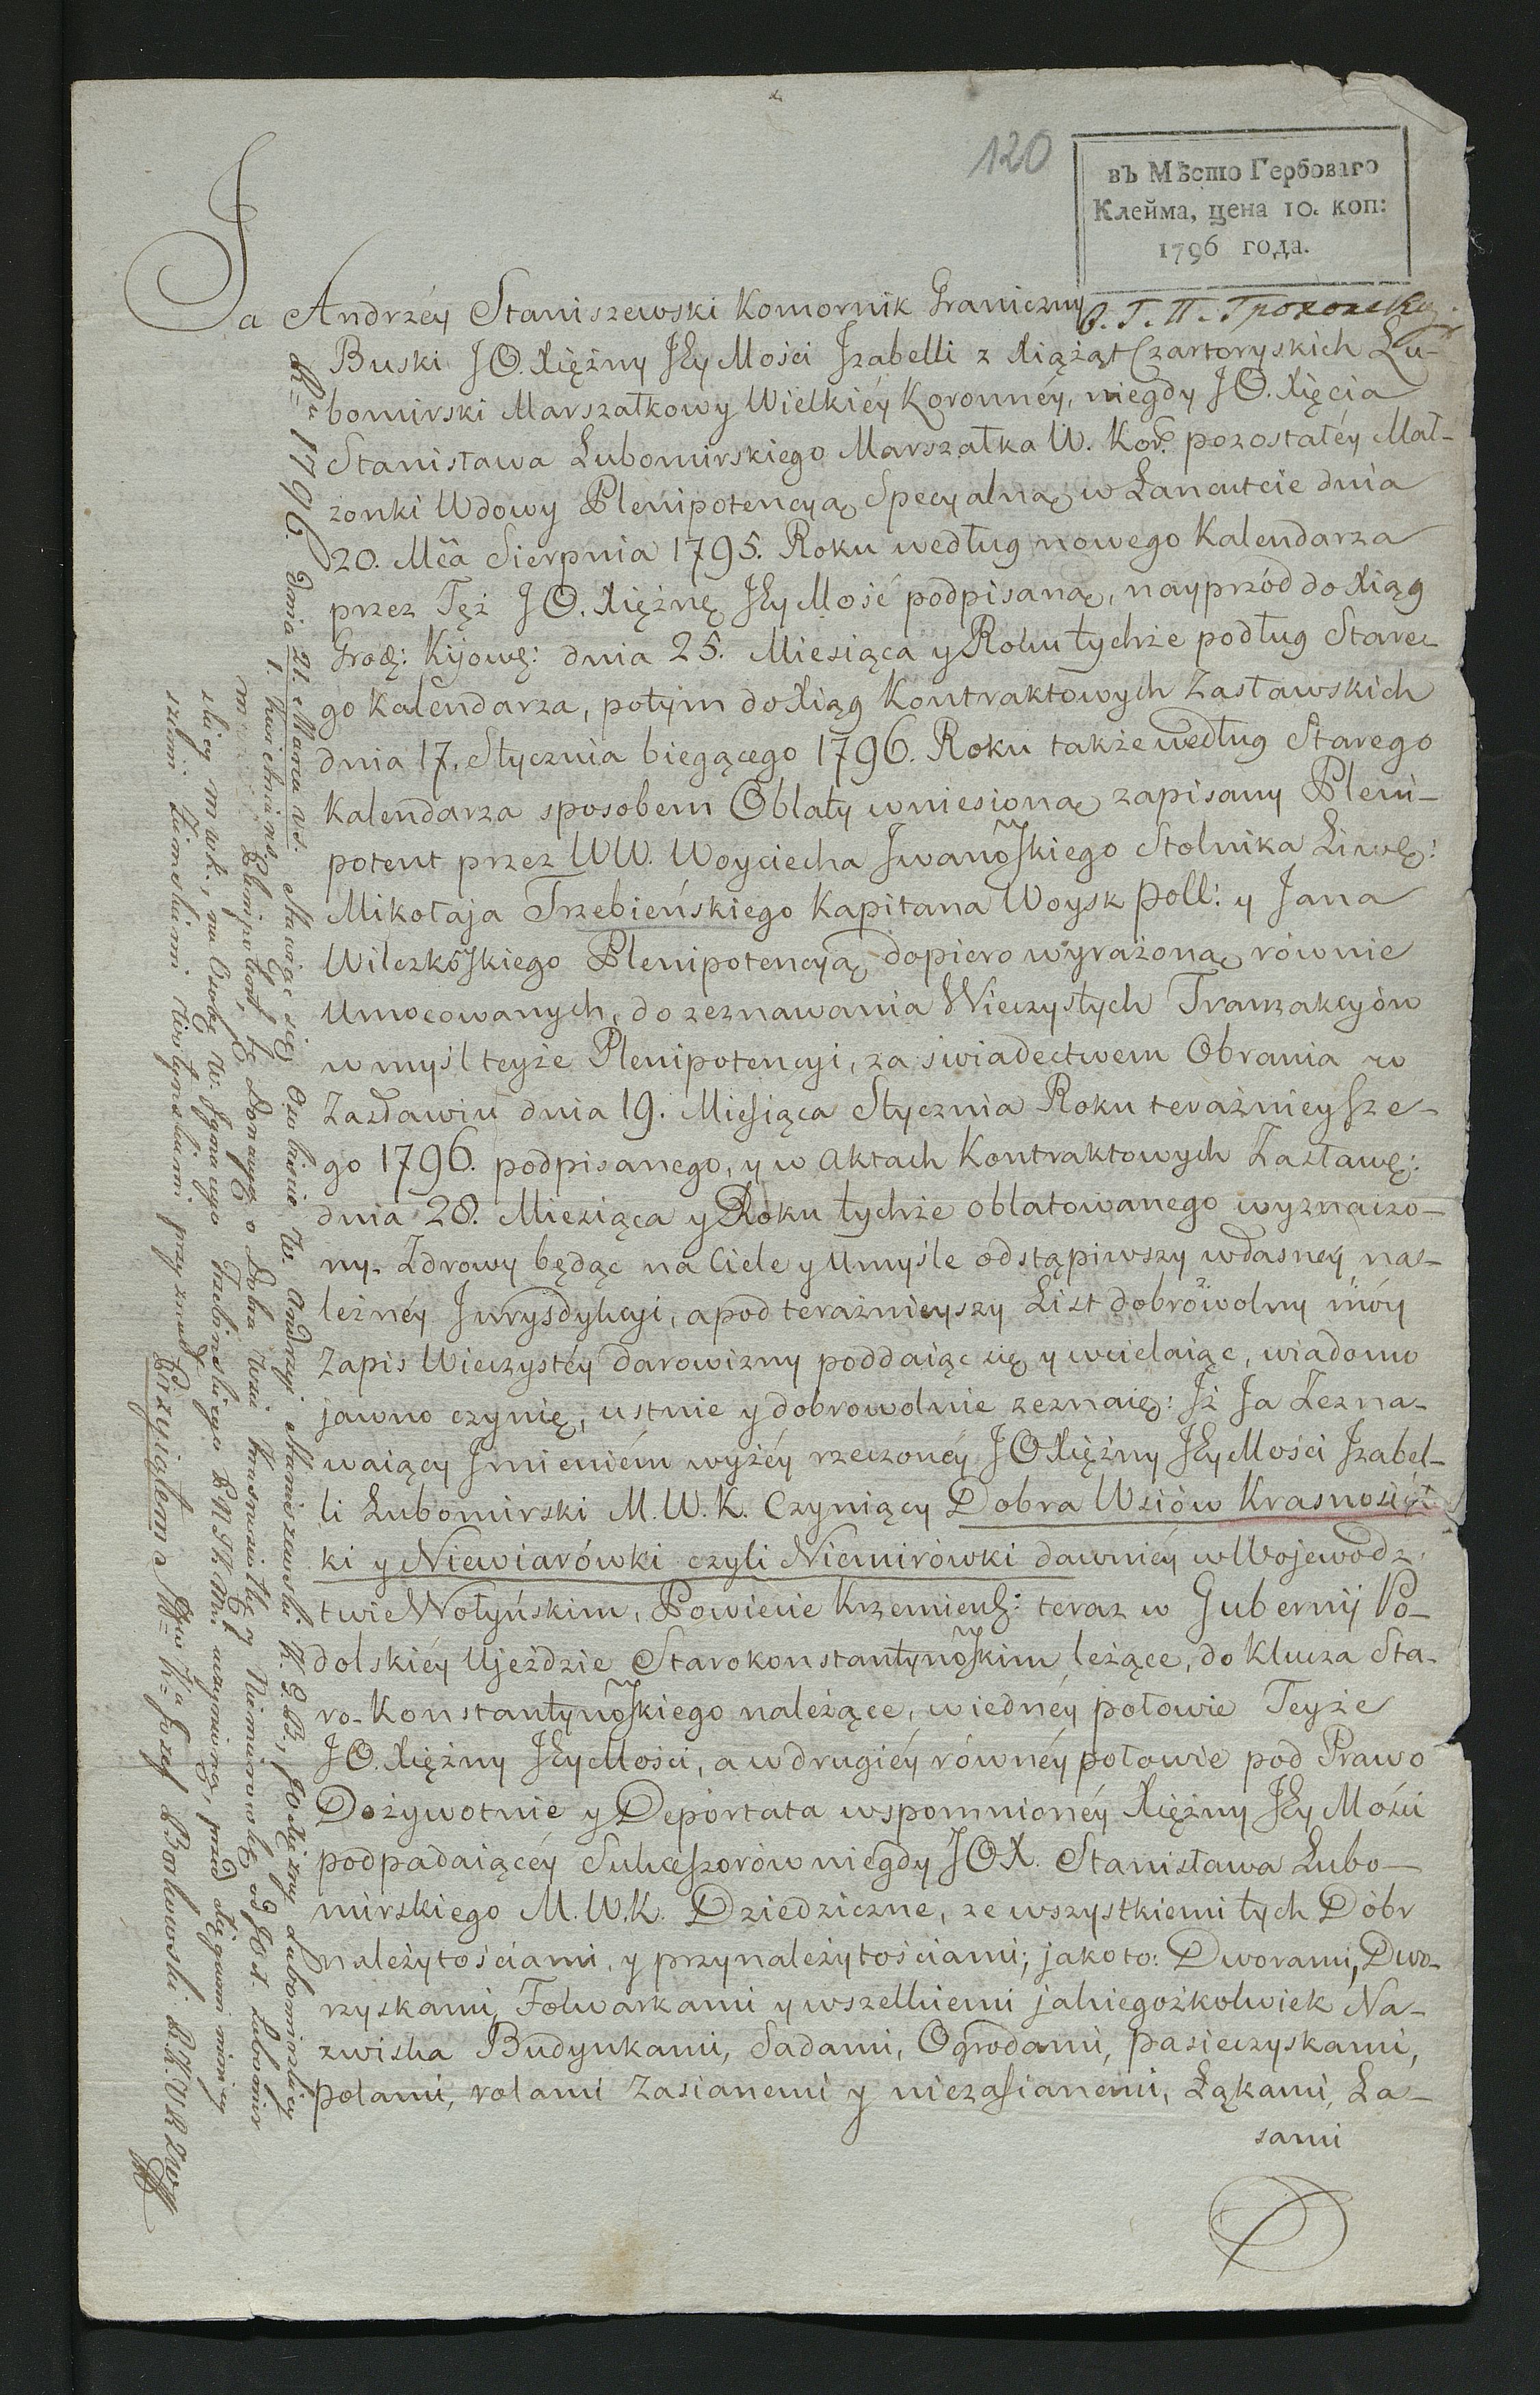 120
въ Мѣсто Гербоваго
Клейма, цена 10. коп:
1796 года.
Ja Andrzéy Staniszewski Komornik Graniczny
Buski JO. Xiężny JEy Mości Jzabelli z Xiążąt Czartoryskich Lu-
bomirski Marszałkowy Wielkiéy Koronnéy, niegdy JO. Xięcia
Stanisława Lubomirskiego Marszałka W. Kor. pozostałéy Mał-
zonki Wdowy Plenipotencyą Specyalną w Łancucie dnia
20. Mca Sierpnia 1795. Roku według nowego Kalendarza
przez Też JO. Xiężnę JEy Mość podpisaną, nayprzód do Xiąg
Grodz: Kijows: dnia 25. Miesiąca y Roku tychże podług Stare-
go Kalendarza, potym do Xiąg Kontraktowych Zasławskich
dnia 17. Stycznia biegącego 1796. Roku także według Starego
Kalendarza sposobem Oblaty wniesioną zapisany Pleni-
potent przez WW. Woyciecha Jwanowskiego Stolnika Liws:
Mikołaja Trzebieńskiego Kapitana Woysk Poll: y Jana
Wilczkowskiego Plenipotencyą dopiero wyrażoną równie
Umocowanych, do zeznawania Wieczystych Tranzakcyów
w myśl teyże Plenipotencyi, za świadectwem Obrania w
Zasławiu dnia 19. Miesiąca Stycznia Roku teraznieysze-
go 1796. podpisanego, y w Aktach Kontraktowych Zasławs:
dnia 28. Miesiąca y Roku tychże oblatowanego wyznaczo-
ny. Zdrowy będąc na Ciele y Umyśle odstąpiwszy własney na-
leżnéy Jurysdykcyi, a pod teraznieyszy List dobrowolny móy
Zapis Wieczystéy darowizny poddaiąc się y wcielaiąc, wiadomo
jawno czynię, ustnie y dobrowolnie zeznaię: Jż Ja Zezna-
waiący Jmieniém wyżéy rzeczonéy JO Xiężny JEy Mości Jzabel-
li Lubomirski M. W. K. Czyniący Dobra Wsiów Krasnosiół
ki y Niewiarówki czyli Niemirówki dawniéy w Wojewodz-
twie Wołyńskim, Powiecie Krzemien: teraz w Gubernij Po-
dolskiéy Ujeździe Starokonstantynowskim leżące, do Klucza Sta-
ro-Konstantynowskiego należące, w iednéy połowie Teyże
JO. Xiężny JEy Mości, a w drugiéy równéy połowie pod Prawo
Dożywotnie y Deportata wspomnionéy Xiężny JEy Mości
podpadaiącéy Sukcessorów niegdy JOX. Stanisława Lubo-
mirskiego M. W. K. Dziedziczne, ze wszystkiemi tych Dóbr
należytościami, y przynależytościami; jako to: Dworami, Dwo-
rzyskami, Folwarkami y wszelkiemi jakiegożkolwiek Na-
zwiska Budynkami, Sadami, Ogrodami, pasieczyskami,
polami, rolami zasianemi y niezasianemi, Łąkami, La-
sami
Rku 1796. Dnia 21. Marca vs. stawaiąc się Osobiście W. Andrzey Staniszewski K. G. B., JO Xiężny Lubomirskiey
1. Kwietnia ns.
m Plenipotent, tę Donacyę o Dobra Wsie Krasnosiołkę y Niemirowkę od JOX. Lubomir
skiey m w k., na Osobę W. Trzebinskiego uczynioną, przed Xięgami
szemi Ziemskiemi Wołynskiemi przyznał.
Przyiąłem Józef Borkowski